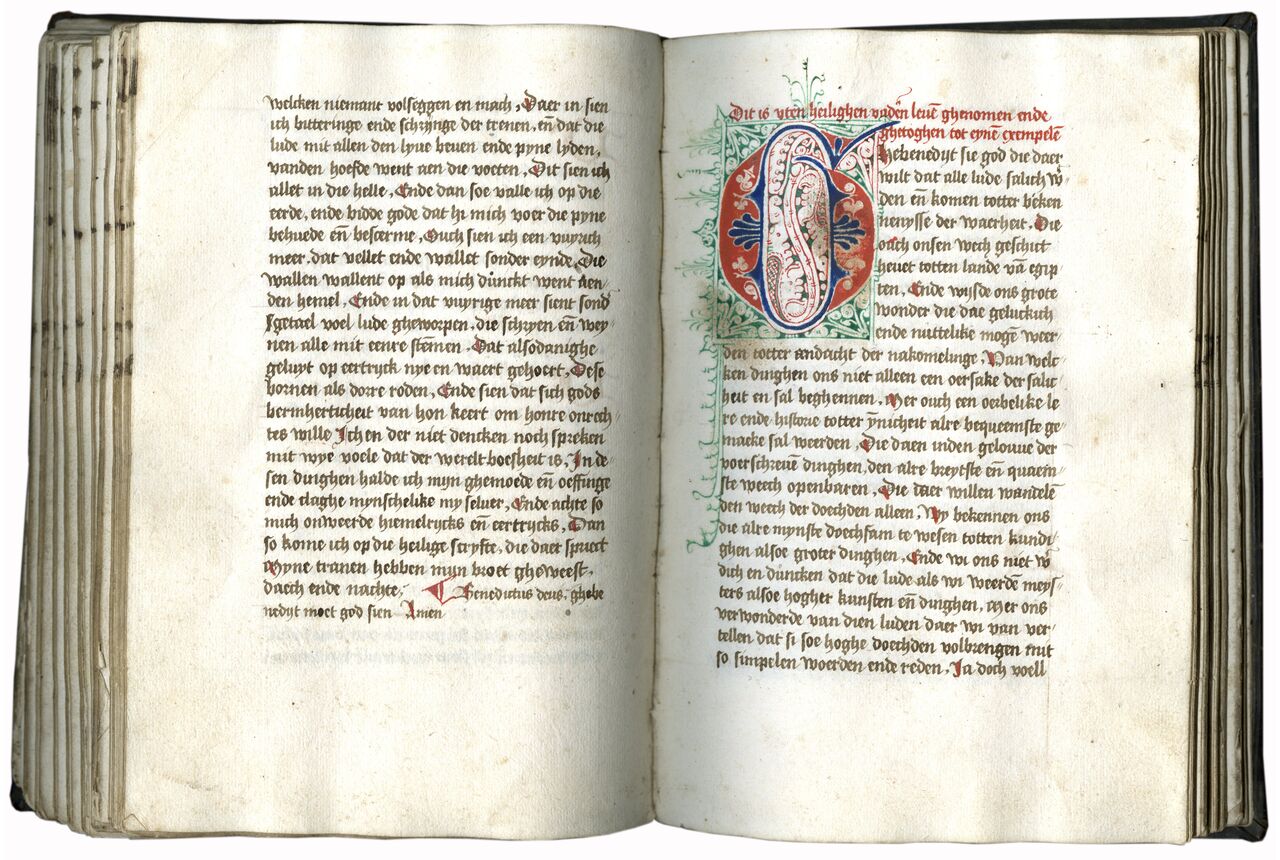 welcken niemant volseggen en mach, Daer in sien
ich bitteringe ende schrynge der trenen, en̄ dat die
lude mit allen den lyue beuen ende pyne lyden,
vanden hoefde went aen die voetten, Dit sien ich
allet in die helle, Ende dan soe valle ich op die
eerde, ende bidde gode dat hi mich voer die pyne
behuede en̄ bescerme, Ouch sien ich een vuyrich
meer, dat vellet ende wallet sonder eynde, Die
wallen wallent op als mich dünckt went aen-
den hemel, Ende in dat vuyrige meer sient sond
getael voel lude gheworpen, die schryen en̄ wey-
nen alle mit eenre stēmen, Dat alsodanighe
geluyt op eertryck nye en waert gehoert, Dese
bornen als dorre roden, Ende sien dat sich gods
bermherticheit van hon keert om honre onrech-
tes wille Ich en der niet dencken noch spreken
mit wye voele dat der werelt boesheit is, In de-
sen dinghen halde ich myn ghemoede en̄ oeffinge
ende claghe mynschelike my seluer, Ende achte so
mich onweerde hiemelrycks en̄ eertrycks, Dan
so kome ich op die heilige scryfte, die daer spruect
Myne tranen hebben myn broet gheweest,
daech ende nachte, Benedictus deus, ghebe
nedyt moet god sien Amen
Dit is vten heilighen vadē leuē ghenomen ende
ghetoghen tot eynē exempelē
Ghebenedyt sie god die daer
wilt dat alle lude salich w̄-
den en̄ komen totter beken
nenysse der waerheit, Die
ouch onsen wech geschict
heuet totten lande vā egip-
ten, Ende wysde ons grote
wonder die dae geluckich
ende nuttelike mogē weer-
den totter andacht der nakomelinge, Van welc-
ken dinghen ons niet alleen een oersake der salic
heit en sal beghennen, Mer ouch een oerbelike le
re ende historie totter ynicheit alre bequeemste ge-
maeke sal weerden, Die daen inden gelouue der
voerschreuē dinghen, den alre breytste en̄ quaem-
ste weech openbaren, Die daer willen wandelē
den weech der doechden alleen, Wy bekennen ons
die alre mynste doechsam te wesen totten kundi-
ghen alsoe groter dinghen, Ende wi ons niet w̄
dich en dūncken dat die lude als wi weerdē meys-
ters alsoe hogher kunsten en̄ dinghen, Mer ons
verwonderde van dien luden daer wi van ver-
tellen dat si soe hoghe doechden volbrengen mit
so simpelen woerden ende reden, Ja doch voell